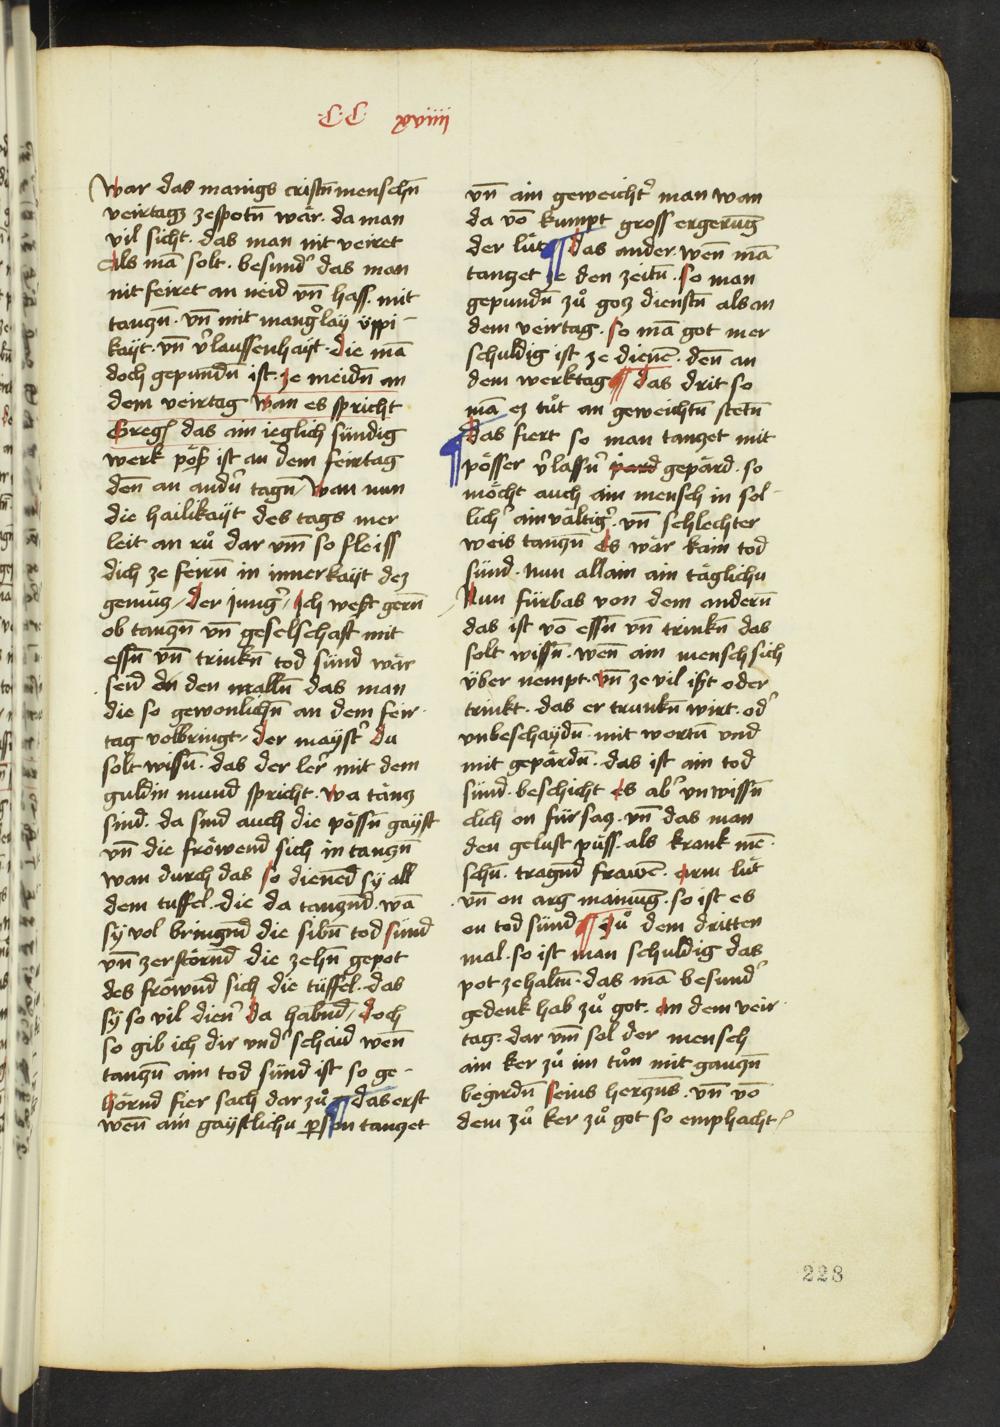 C·C· xviiij
War das manigs cristn̄ menschn̄
veirtag ze spotn̄ wär. da man
vil sicht. das man nit veiret
Als mā solt. besundʾ das man
nit feiret an neid vn̄ hass. mit
tanzn̄. vn̄ mit manglay üppi-
kayt. vn̄ vʾlaussenhayt. die mā
doch gepundn̄ ist. ze meidn̄ an
dem veirtag Wan es spricht
Greg das ain ieglich sündig
werk pöß ist an dem feirtag
den̄ an andn̄ tagn̄ / Wan nun
die hailikayt des tags mer
leit an rů dar vm̄ so fleiss
dich ze feirn̄ in innerkayt dez
gemüz / Der jungʾ / Ich west gern̄
ob tanzn̄ vn̄ geselschaft mit
essn̄ vn̄ trinkn̄ tod sünd wär
seid den malln̄ das man
die so gewonlichn̄ an dem feir-
tag volbringt / der maystʾ Du
solt wissn̄. das der lerʾ mit dem
guldin mund spricht. wa tänz
sind. da sind auch die pössn̄ gayst
vn̄ die fröwend sich in tanzn̄
wan durch das so diened sy all
dem tuffel. die da tanznd. wā
sy vol bringnd die sibn̄ tod sünd
vn̄ zerstörnd die zehn̄ gepot
des fröwnd sich die tüffel. das
sy so vil dienʾ da habnd / doch
so gib ich dir vndʾschaid wen̄
tanzn̄ ain tod sünd ist so ge-
hörnd fier sach dar zů ¶ das erst
wen̄ ain gaystlichu pson tanzet
vn̄ ain geweichtʾ man wan
da vō kumpt gross ergerūg
der lüt ¶ das ander. wen̄ mā
tanzet ze den zeitn̄. so man
gepundn̄ zů gotz dienstn̄ als an
dem veirtag. so mā got mer
schuldig ist ze dienē. den̄ an
dem werktag ¶ das drit so
mā ez tůt an geweichtn̄ stetn̄
¶ das fiert so man tanzet mit
pösser vʾlassn̄ gepärd. so
möcht auch ain mensch in sol-
lichʾ ainvältigʾ. vn̄ schlechter
weis tanzn̄ es wär kain tod
sünd. nun allain ain täglichu
Nun fürbas von dem andern̄
das ist vō essn̄ vn̄ trinkn̄ das
solt wissn̄. wen̄ ain mensch sich
über nempt. vn̄ ze vil ißt oder
trinkt. das er trunkn̄ wirt. odʾ
vnbeschaydn̄. mit wortn̄ vnd
mit gepärdn̄. das ist ain tod
sünd. beschicht es abʾ vnwissn̄
clich on fürsaz. vn̄ das man
den gelust püss. als krank mē-
schn̄. tragnd frawē. arm lüt
vn̄ on arg mainūg. so ist es
on tod sünd ¶ Zů dem dritten
mal. so ist man schuldig das
pot ze haltn̄. das mā besundʾ
gedenk hab zů got. an dem veir-
tag. dar vm̄ sol der mensch
ain ker zů im tůn mit ganzn̄
begirdn̄ seins herzns. vn̄ vō
dem zů ker zů got so emphacht /
228